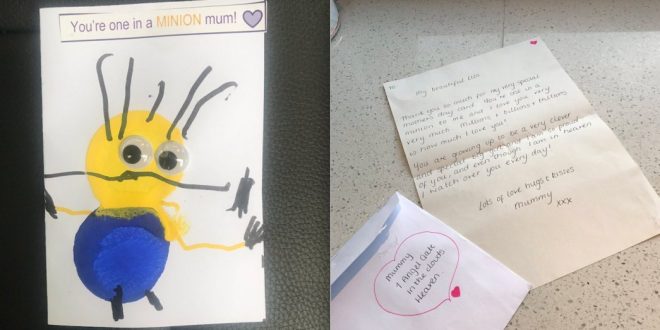 You're one in a MINION mum!
To
My beautiful
Thank you so much for my very special
mothers day card. You're one in a
minion to me and I love you very
much. Millions + billions + trillions
is how much I love you!
You are growing up to be a very clever
and special boy and I am so proud
of you, and even though I am in heaven
I watch over you every day!
Lots of love hugs + kisses
Mummy xxx
Mummy
1 Angel Gate
In the clouds
Heaven